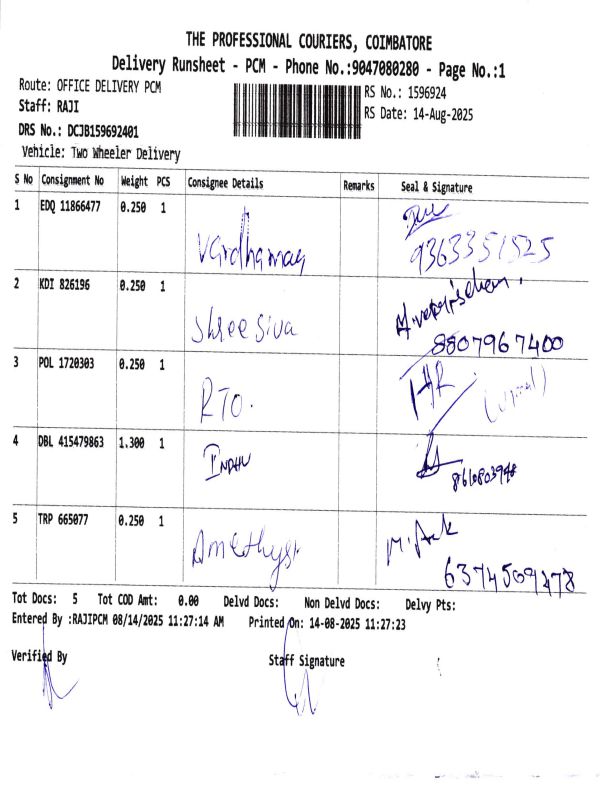 THE PROFESSIONAL COURIERS, COIMBATORE
Delivery Runsheet - PCM - Phone No.:9047080280 - Page No.:1
Route: OFFICE DELIVERY PCM
RS No.: 1596924
Staff: RAJI
RS Date: 14-Aug-2025
DRS No.: DCJB159692401
Vehicle: Two Wheeler Delivery
S No Consignment No Weight PCS Consignee Details Remarks Seal & Signature
1 EDQ 11866477 0.250 1
Vardhaman 9363351525
2 KDI 826196 0.250 1
Shree Siva 8807967400
3 POL 1720303 0.250 1
RTO.
4 DBL 415479863 1.300 1
INDHU
5 TRP 665077 0.250 1
Amethyst
Tot Docs: 5 Tot COD Amt: 0.00 Delvd Docs: Non Delvd Docs: Delvy Pts:
Entered By :RAJIPCM 08/14/2025 11:27:14 AM Printed On: 14-08-2025 11:27:23
Verified By Staff Signature